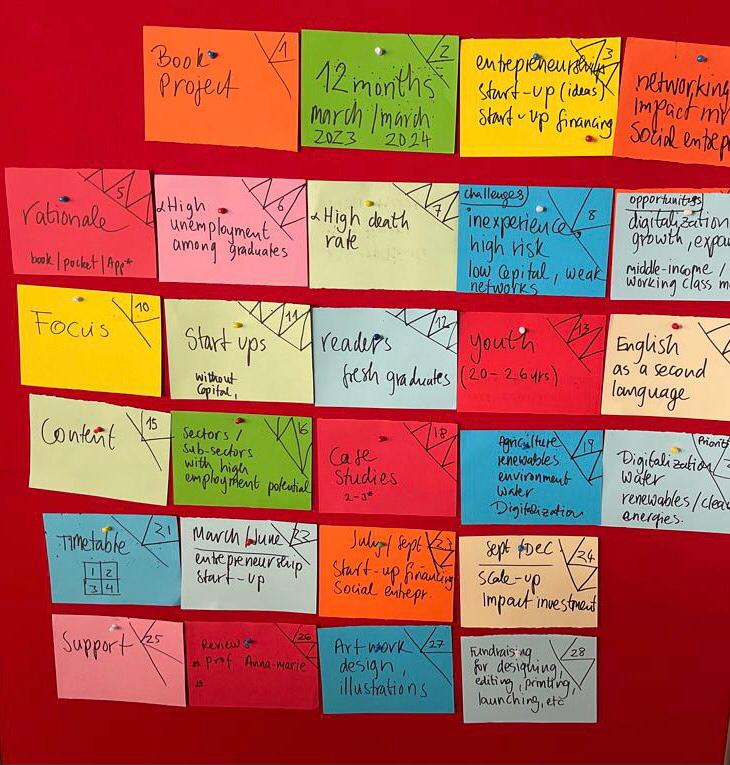 Book
Project
1
12 months
march/march
2023 2024
2
entrepreneurship
start-up (ideas)
Start-up financing
3
networking
Impact
Social entrep
rationale
book/pocket/App*
5
High
unemployment
among graduates
6
High death
rate
7
challenges
inexperience,
high risk
low capital, weak
networks
8
opportunities
digitalization
growth, expa
middle-income /
working class m
Focus
10
Start ups
without
capital,
11
readers
fresh graduates
12
youth
(20-26yrs)
13
English
as a second
language
Content
15
Sectors /
sub-sectors
with high
employment potential
16
Case
Studies
2-3*
18
Agriculture
renewables
environment
Water
Digitalization
19
Priorit
Digitalization
water
renewables/clean
energies.
Timetable
1 2
3 4
21
March/June
entrepreneurship
start-up
22
July/Sept
Start-up financing
Social entrepr.
23
Sept/Dec
scale-up
Impact investment
24
Support
25
Review
* prof Anna-marie
26
Artwork
design,
illustrations
27
Fundraising
for designing,
editing, printing,
launching, etc
28